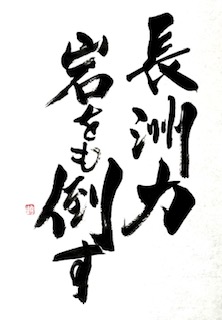 長洲力
岩をも倒す